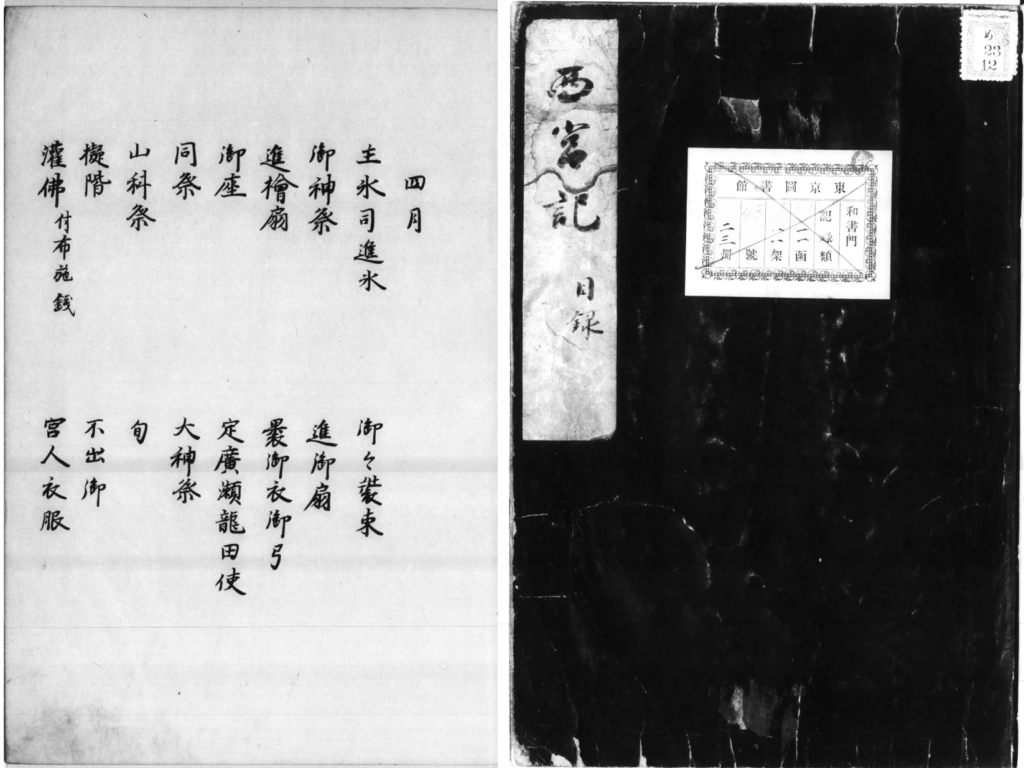 め
23
12
西宮記 目録
東京圖書館
和書門
記録類
函
架
號
二三冊
四月
主氷司進氷 御々装束
御神祭 進御扇
進檜扇 御衣御弓
御座 定廣瀬龍田使
同祭 大神祭
山科祭 旬
擬階 不出御
灌佛付布施銭 宮人衣服